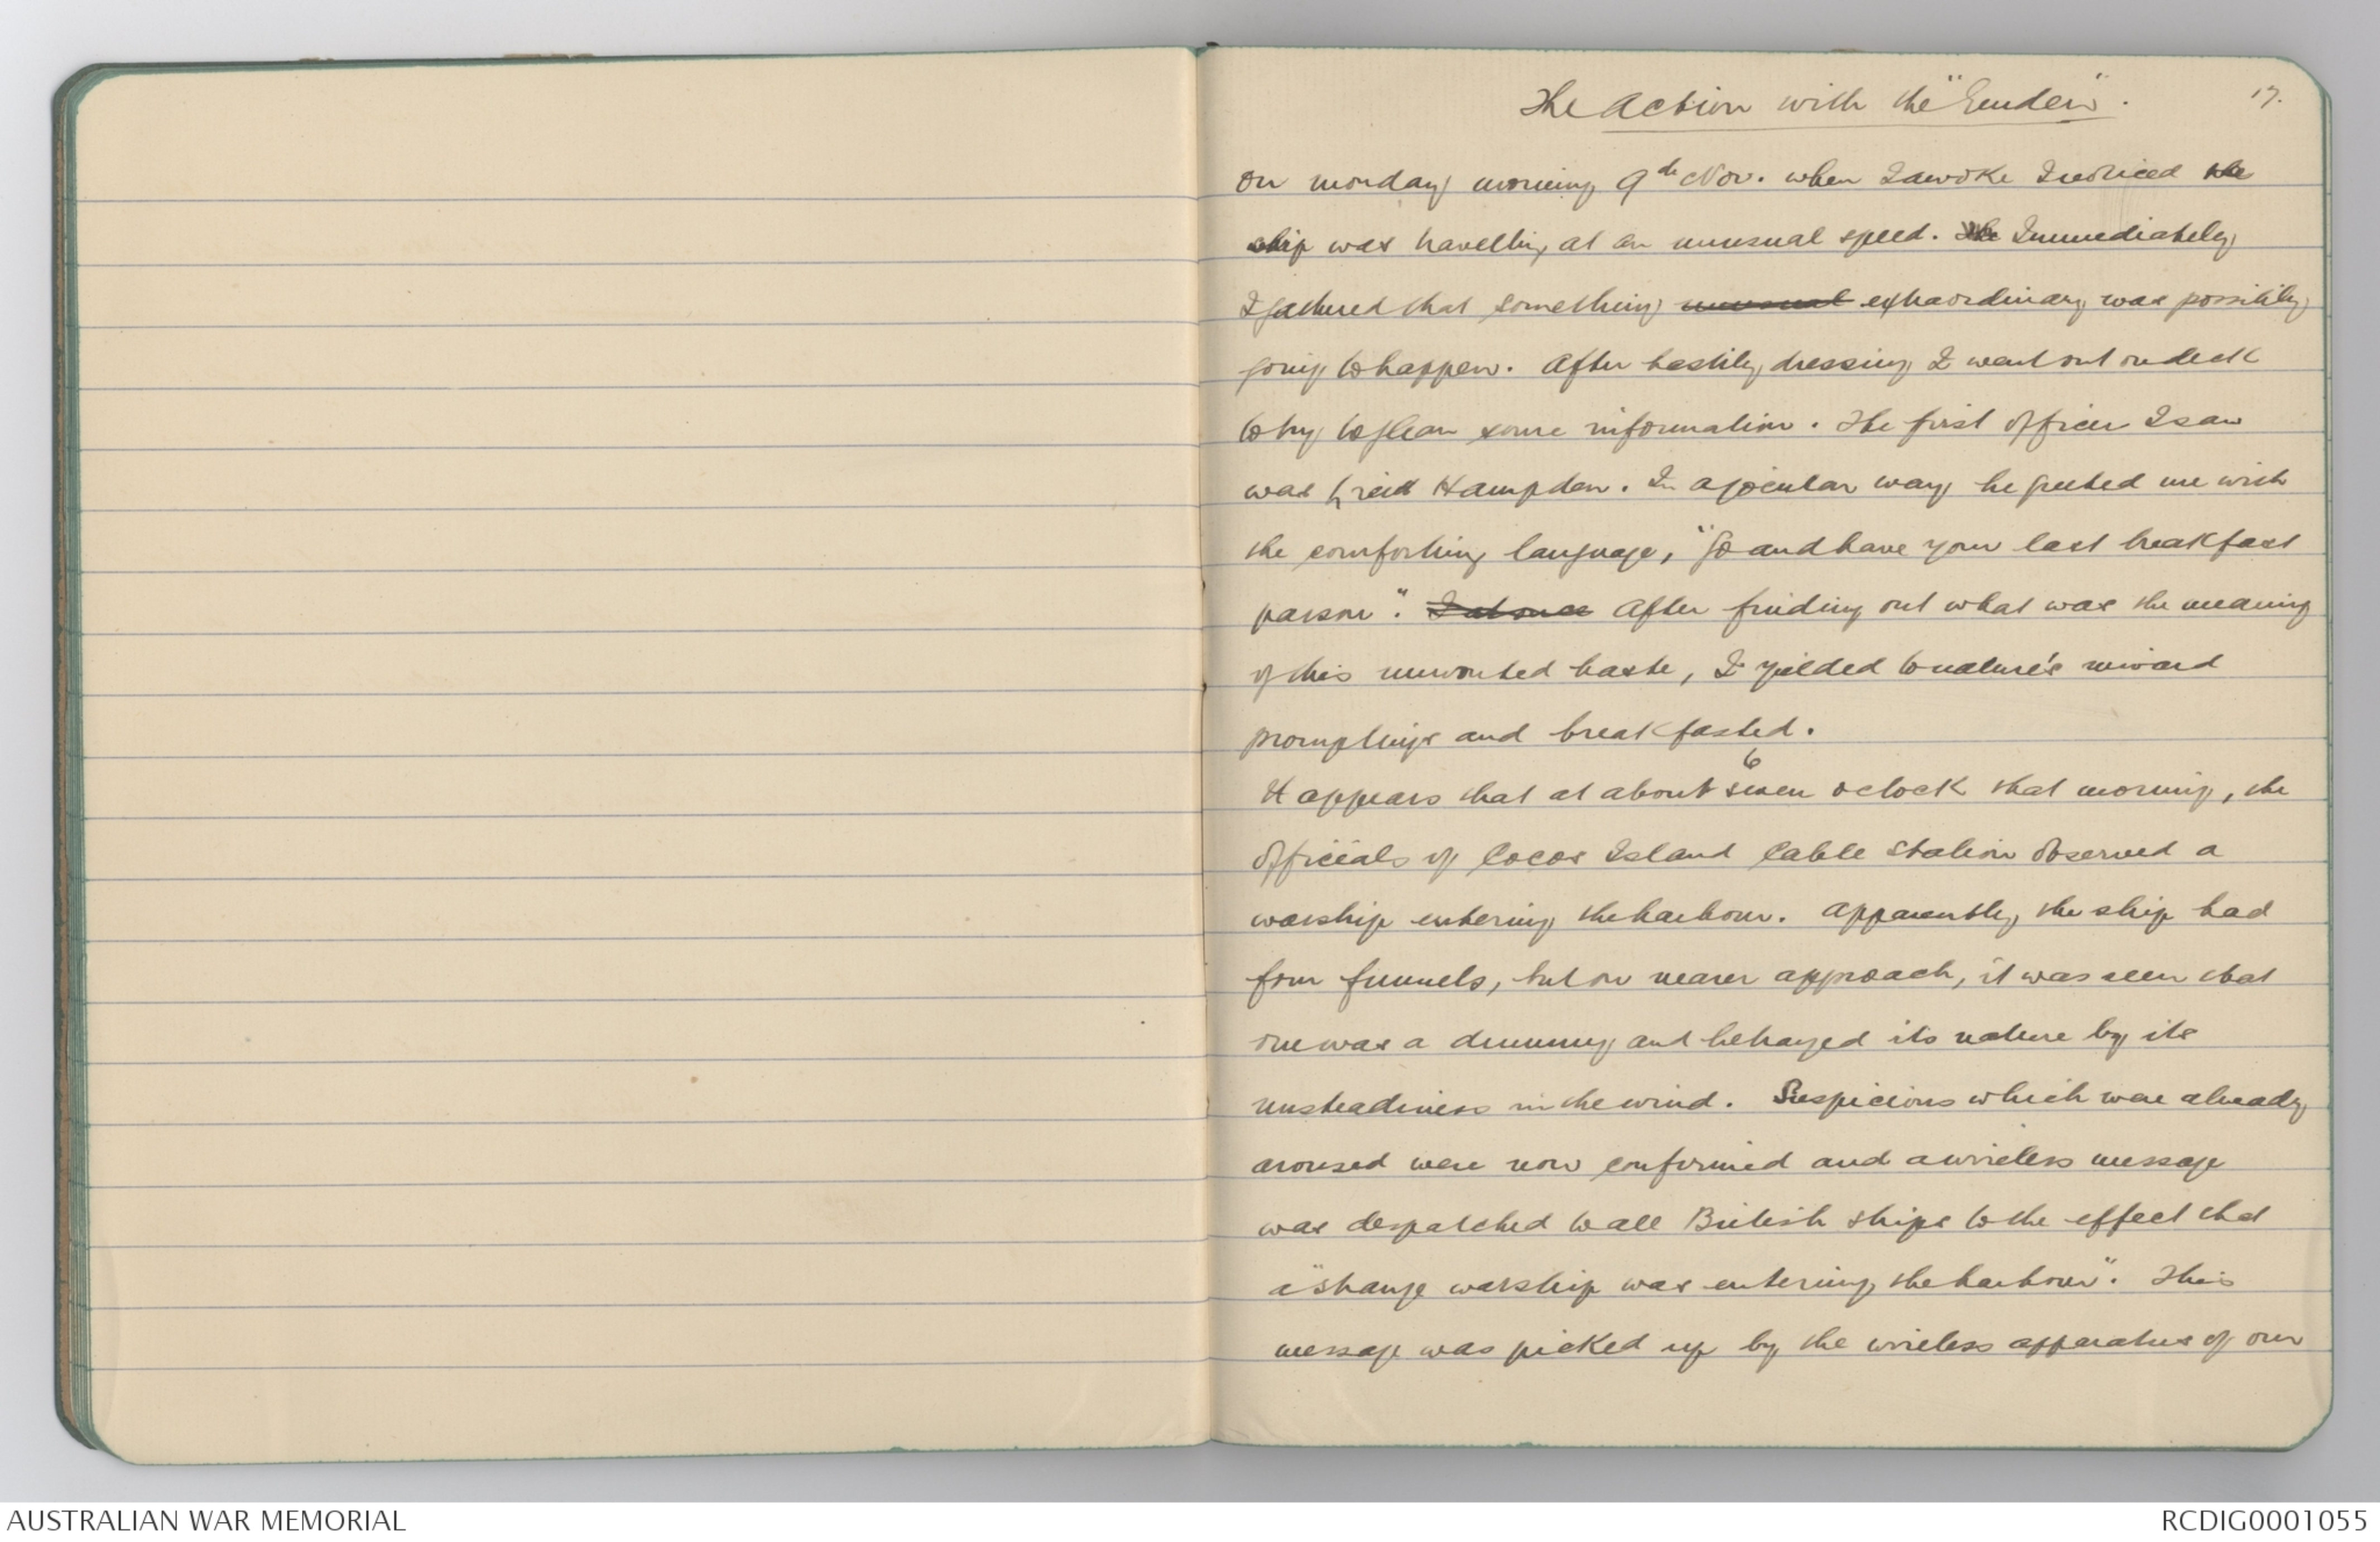 The Action with the "Emden".
17.
On monday morning 9th Nov. when I awoke I noticed the
ship was travelling at an unusual speed. The Immediately
I gathered that something unusual extraordinary was possibly
going to happen. After hastily dressing I went out on deck
to try to glean some information. The first officer I saw
was Hampden. In a jocular way he greeted me with
the comforting language, "Go and have your last breakfast
parson". I at once After finding out what was the meaning
of this unwonted haste, I yielded to nature's inward
promptings and breakfasted.
6
It appears that at about seven oclock that morning, the
officials of Cocos Island Cable Station observed a
warship entering the harbour. Apparently, the ship had
four funnels, but on nearer approach, it was seen that
one was a dummy and betrayed its nature by its
unsteadiness in the wind. Suspicions which were already
aroused were now confirmed and a wireless message
was despatched to all British ships to the effect that
a "strange warship was entering the harbour". This
message was picked up by the wireless apparatus of our
AUSTRALIAN WAR MEMORIAL
RCDIG0001055